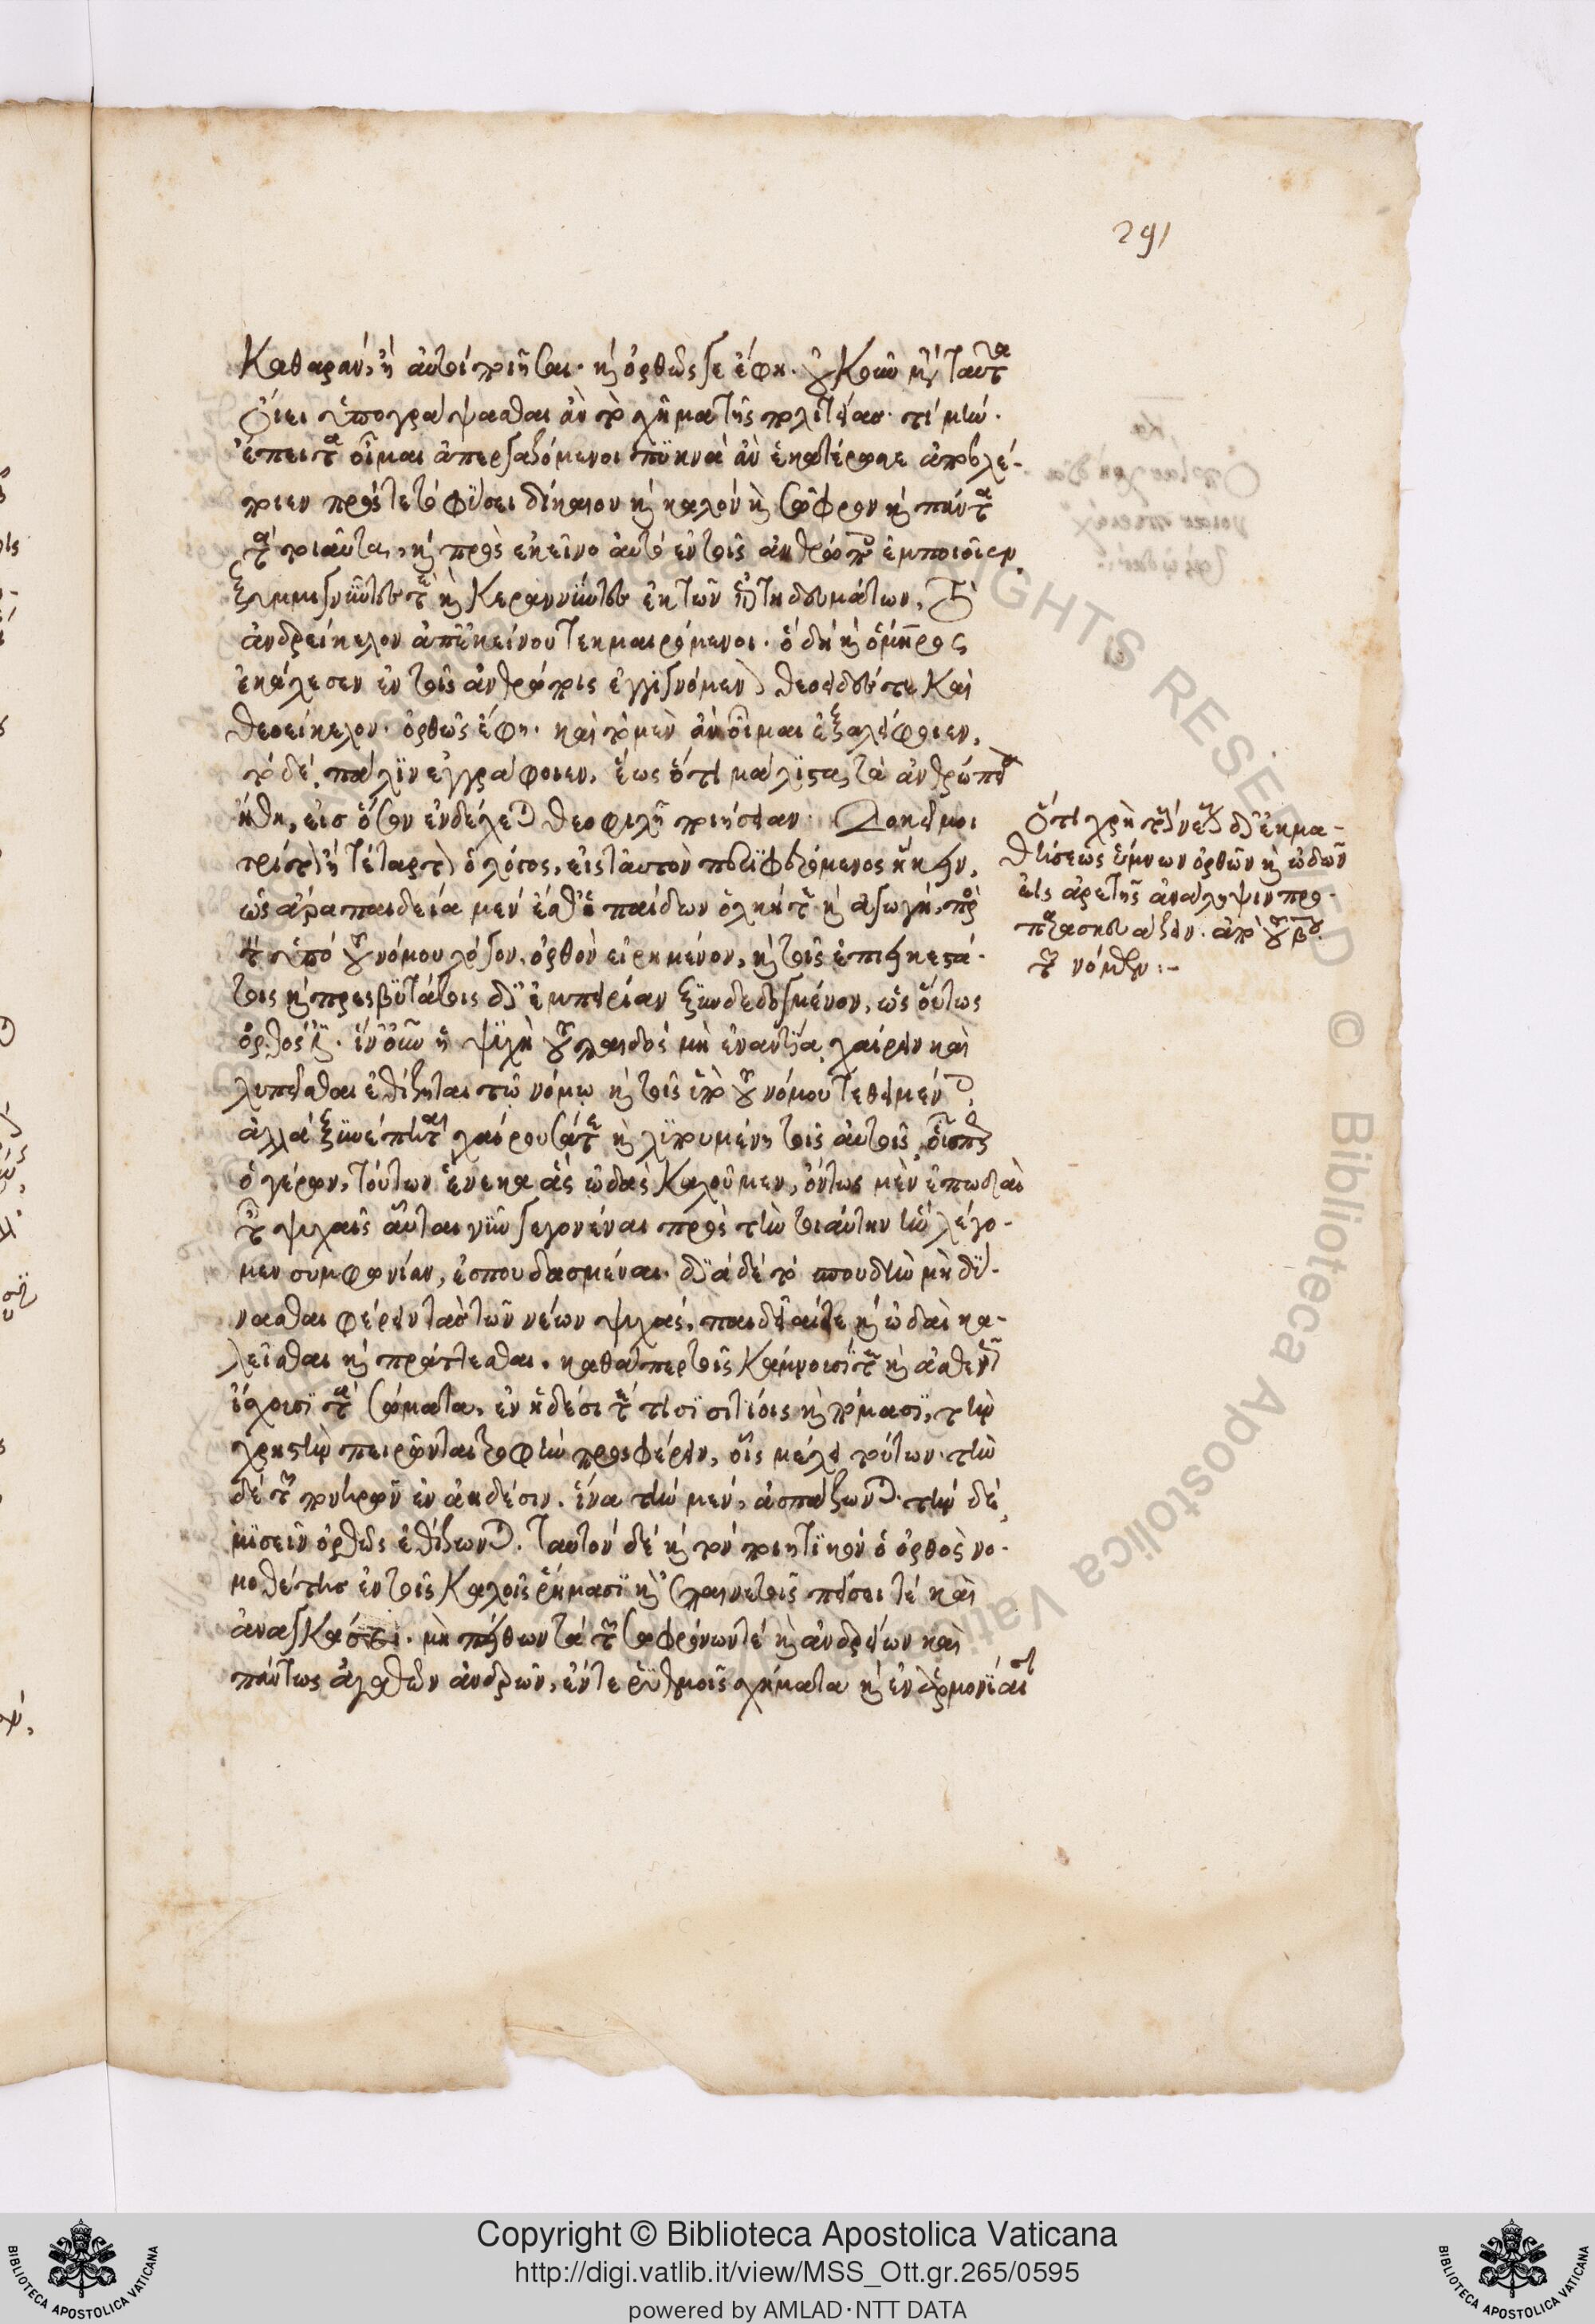 291
καθαρὰν, ἢ αὐτοὶ ποιῆσαι. καὶ ὀρθῶς γε ἔφη. οὐκοῦν μετὰ ταῦτα
οἴει ὑπογράψασθαι ἂν τὸ σχῆμα τῆς πολιτείας. τί μήν.
ἔπειτα οἶμαι ἀπεργαζόμενοι πυκνὰ ἂν ἑκατέρωσε ἀποβλέ-
ποιεν πρός τε τὸ φύσει δίκαιον καὶ καλὸν καὶ σῶφρον καὶ πάντα
τὰ τοιαῦτα, καὶ πρὸς ἐκεῖνο αὖ τὸ ἐν τοῖς ἀνθρώποις ἐμποιοῖεν
ξυμμιγνύντες τε καὶ κεραννύντες ἐκ τῶν ἐπιτηδευμάτων, τὸ
ἀνδρείκελον ἀπ' ἐκείνου τεκμαιρόμενοι. ὃ δὴ καὶ ὅμηρος
ἐκάλεσεν ἐν τοῖς ἀνθρώποις ἐγγιγνόμενον θεοειδές τε καὶ
θεοείκελον. ὀρθῶς ἔφη. καὶ τὸ μὲν ἂν οἶμαι ἐξαλείφοιεν,
τὸ δέ, πάλιν ἐγγράφοιεν, ἕως ὅτι μάλιστα, τὰ ἀνθρώπεια
ἤθη, εἰς ὅσον ἐνδέχεται θεοφιλῆ ποιήσειαν. Δοκεῖ μοι
τρίτον ἢ τέταρτον ὁ λόγος, εἰς ταυτὸν περιφερόμενος ἥκειν,
ὡς ἄρα παιδεία μέν ἐσθ' ἡ παίδων ὁλκή τε καὶ ἀγωγὴ, πρὸς
τὸν ὑπὸ τοῦ νόμου λόγον, ὀρθὸν εἰρημένον, καὶ τοῖς ἐπιεικεστά-
τοις καὶ πρεσβυτάτοις δι' ἐμπειρίαν ξυνδεδογμένον, ὡς ὄντως
ὀρθός ἐστιν. ἵν' οὖν ἡ ψυχὴ τοῦ παιδὸς μὴ ἐναντία χαίρειν καὶ
λυπεῖσθαι ἐθίζηται τῷ νόμῳ καὶ τοῖς ὑπὸ τοῦ νόμου τεθειμένοις,
ἀλλὰ ξυνέπηται χαίρουσά τε καὶ λυπουμένη τοῖς αὐτοῖς, οἷσπερ
ὁ γέρων, τούτων ἕνεκα ἃς ᾠδὰς καλοῦμεν, ὄντως μὲν ἐπωδαὶ
ταῖς ψυχαῖς αὗται νῦν γεγονέναι πρὸς τὴν τοιαύτην ἣν λέγο-
μεν συμφωνίαν, ἐσπουδασμέναι. διὰ δὲ τὸ σπουδὴν μὴ δύ-
νασθαι φέρειν τὰς τῶν νέων ψυχάς, παιδιαί τε καὶ ᾠδαὶ κα-
λεῖσθαι καὶ πράττεσθαι. καθάπερ τοῖς κάμνουσί τε καὶ ἀσθενῶς
ἴσχουσι τὰ σώματα, ἐν ἡδέσι τέ τισι σιτίοις καὶ πόμασι, τὴν
χρηστὴν πειρῶνται τροφὴν προσφέρειν, οἷς μέλει τούτων. τὴν
δὲ τῶν πονηρῶν ἐν ἀηδέσιν. ἵνα τὴν μέν, ἀσπάζωνται. τὴν δὲ,
μισεῖν ὀρθῶς ἐθίζωνται. ταυτὸν δὲ καὶ τὸν ποιητικὸν ὁ ὀρθὸς νο-
μοθέτης ἐν τοῖς καλοῖς ῥήμασι καὶ ἐπαινετοῖς πείσει τέ καὶ
ἀναγκάσει. μὴ πείθων τὰ τῶν σωφρόνων τέ καὶ ἀνδρείων καὶ
πάντως ἀγαθῶν ἀνδρῶν, ἔν τε ῥυθμοῖς σχήματα καὶ ἐν ἁρμονίαις
ὅτι χρὴ τοὺς νέους δι' ἐκμα-
θήσεως ὕμνων ὀρθῶν καὶ ᾠδῶν
εἰς ἀρετῆς ἀνάληψιν προ-
παρασκευάζειν. ἀπὸ τοῦ βου
τῶν νόμων:-
Copyright © Biblioteca Apostolica Vaticana
http://digi.vatlib.it/view/MSS_Ott.gr.265/0595
powered by AMLAD·NTT DATA